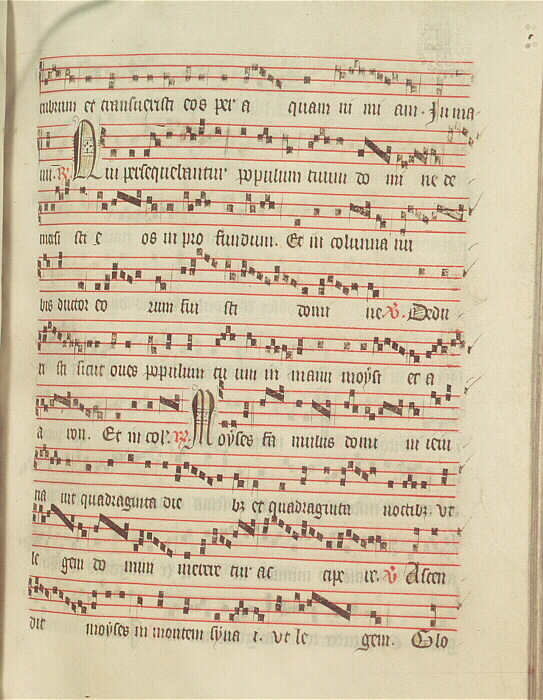 nibrium et transuexisti eos per a quam ni mi am. In ma
nu. R. Qui persequebantur populum tuum do mi ne de
mersi sti e os in pro fundum. Et in columna nu
bis ductor eo rum fui sti domi ne. V. Dedu
xi sti sicut oues populum tu um in manu moysi et a
a ron. Et in col. R. Moyses fa mulus domi ni ieiu
na uit quadraginta die bz et quadraginta noctibz. vt
le gem do mini merere tur ac cipe re. V. Ascen
dit moyses in montem syna i. Vt le gem. Glo